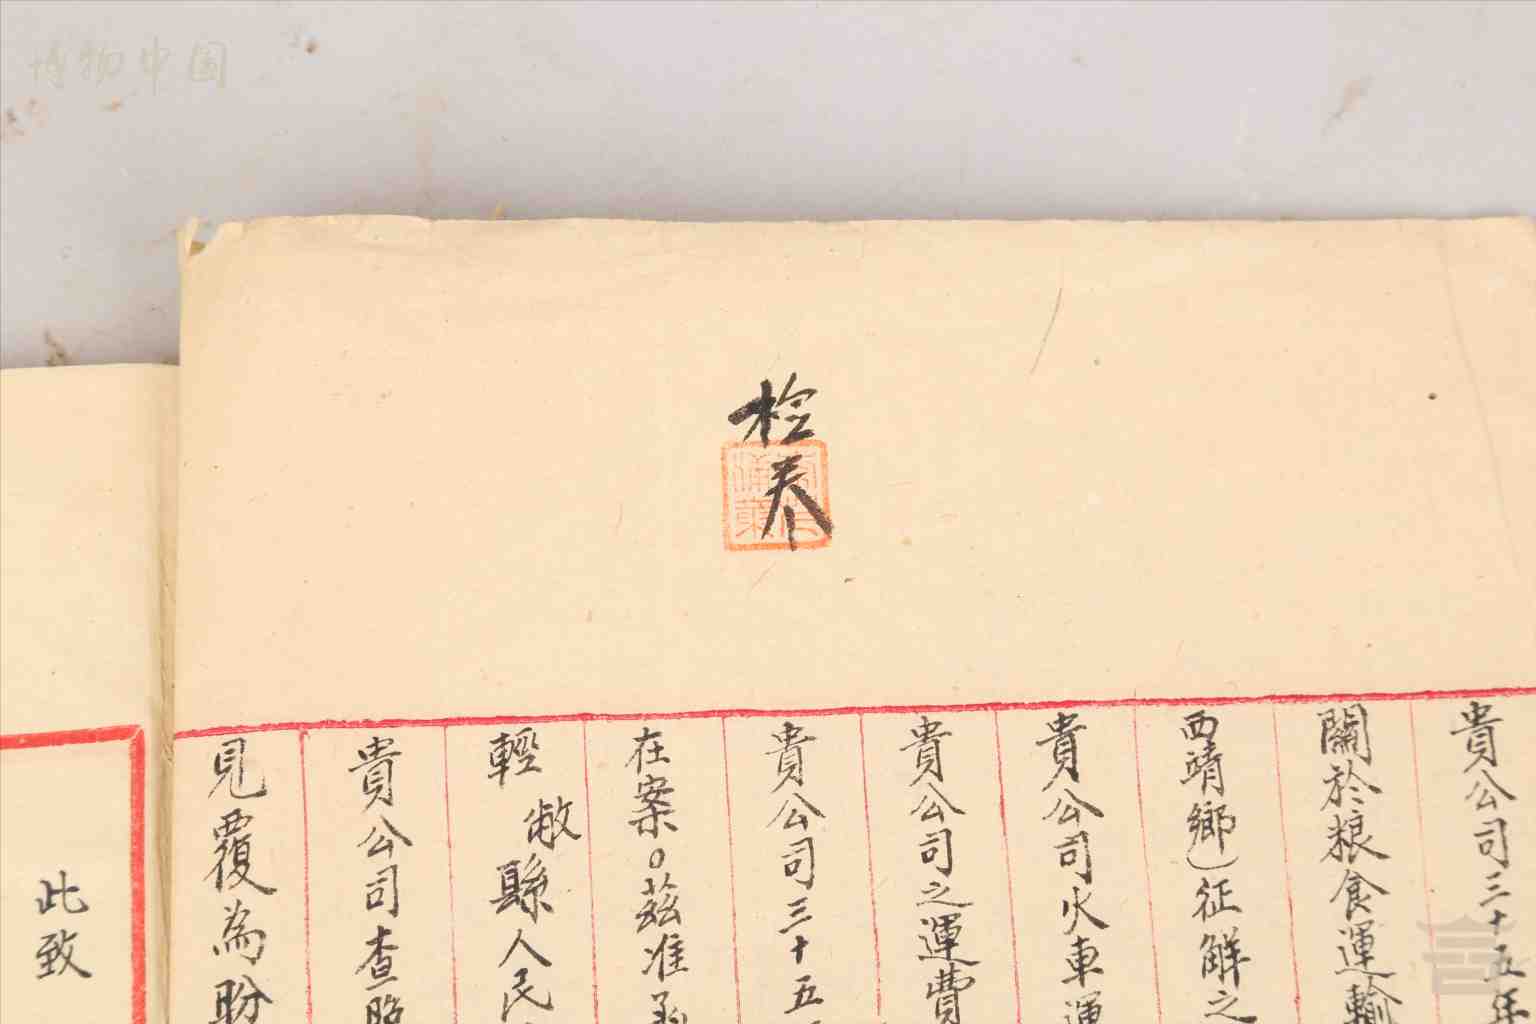 博物中国
检卷
貴公司三十五年
關於粮食運輸
西靖鄉)征解之
貴公司火車運
貴公司之運費
貴公司三十五
在案。茲准
輕敝縣人民
貴公司查照
見覆為盼
此致